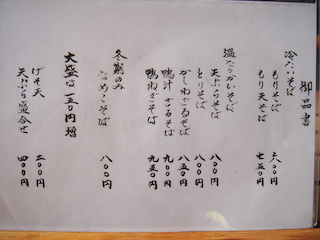 御品書
冷たいそば
もりそば 六〇〇円
もり天そば 七五〇円
温かいそば
天ぷらそば 八〇〇円
とりそば 八〇〇円
かしわざるそば 八五〇円
鴨汁ざるそば 九〇〇円
鴨ねぎそば 九五〇円
冬期のみ
なめこそば 八〇〇円
大盛は一五〇円増
げそ天 二〇〇円
天ぷら盛合せ 四〇〇円